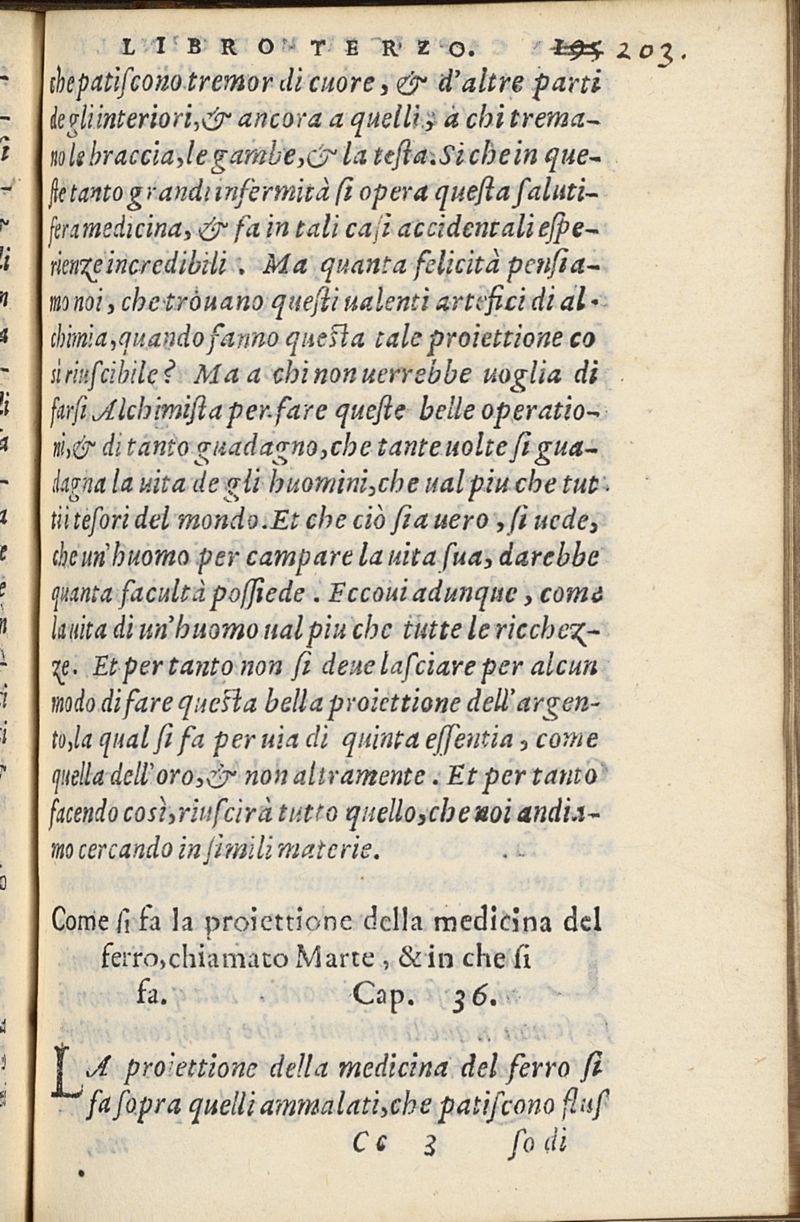 LIBRO TERZO. 195 203.
che patiſcono tremor di cuore, & d'altre parti
de gli interiori, & ancora a quelli, a chi trema-
no le braccia, le gambe, & la teſta. Si che in que-
ſte tanto grandi infermità ſi opera queſta ſaluti-
fera medicina, & fa in tali caſi accidentali eſpe-
rienze incredibili. Ma quanta felicità penſia-
mo noi, che trouano queſti ualenti artefici di al-
chimia, quando fanno queſta tale proiettione co
sì riuſcibile? Ma a chi non uerrebbe uoglia di
farſi Alchimiſta per fare queſte belle operatio-
ni, & di tanto guadagno, che tante uolte ſi gua-
dagna la uita de gli huomini, che ual piu che tut
ti i teſori del mondo. Et che ciò ſia uero, ſi uede,
che un'huomo per campare la uita ſua, darebbe
quanta facultà poſſiede. Eccoui adunque, come
la uita di un'huomo ual piu che tutte le ricchez-
ze. Et per tanto non ſi deue laſciare per alcun
modo di fare queſta bella proiettione dell'argen-
to, la qual ſi fa per uia di quinta eſſentia, come
quella dell'oro, & non altramente. Et per tanto
facendo così, riuſcirà tutto quello, che noi andia-
mo cercando in ſimili materie.
Come ſi fa la proiettione della medicina del
ferro, chiamato Marte, & in che ſi
fa. Cap. 36.
LA proiettione della medicina del ferro ſi
fa ſopra quelli ammalati, che patiſcono fluſ
Cc 3 ſo di